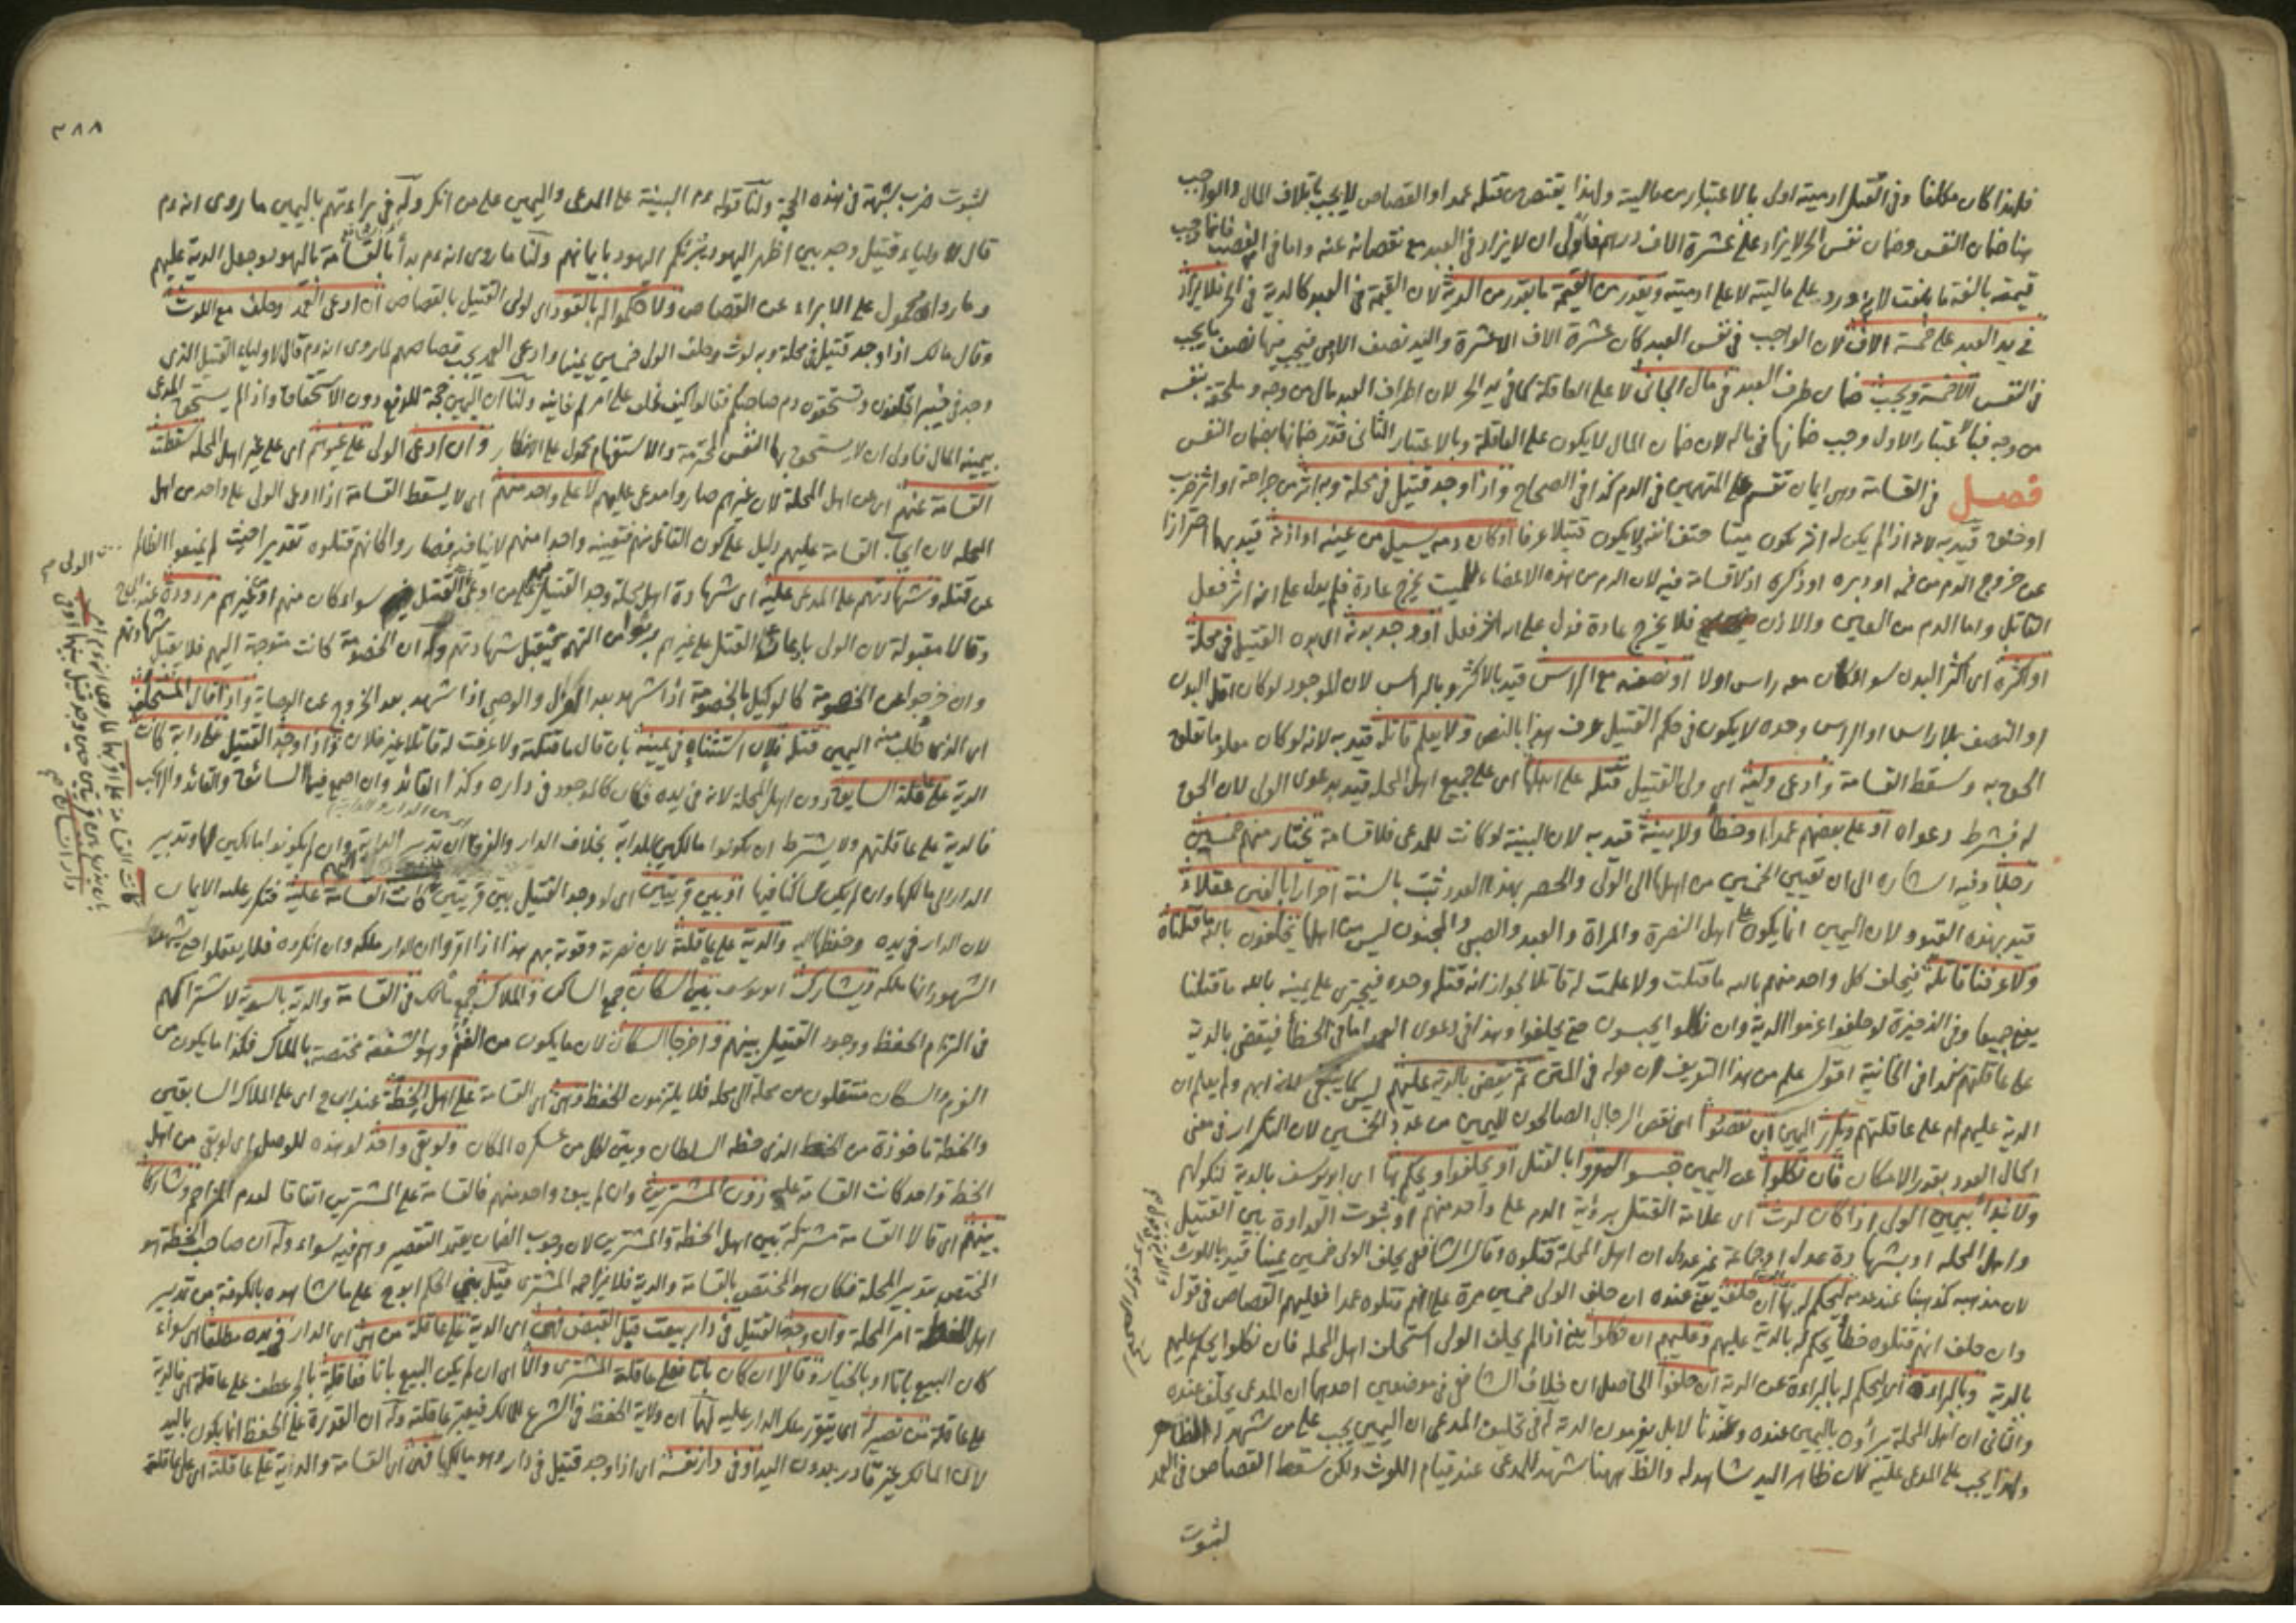 فلهذا كان مكلفا وفي القتل ادميته اولى بالاعتبار من ماليته ولهذا يقتص من قتله عمدا والقصاص لا يجب باتلاف المال والواجب
هنا ضمان النفس وضمان نفس الحر لا يزاد على عشرة الاف درهم فاولى ان لا يزاد في العبد مع نقصانه عنه واما في الغصب فانما وجب
قيمته بالغة ما بلغت على ماليته لا على ادميته ويقدر من القيمة ما يقدر من الدية لان القيمة في العبد كالدية في الحر فلا يزاد
في يد العبد على خمسة الاف لان الواجب في نفس العبد كان عشرة الاف الا عشرة واليد نصف الادمي فيجب فيها نصف ما يجب
في النفس الا خمسة ويجب ضمان طرف العبد في مال الجاني لا على العاقلة كما في يد الحر لان اطراف العبد مال من وجه وملحقة بنفسه
من وجه فباعتبار الاول وجب ضمانها في ماله لان ضمان المال لا يكون على العاقلة وبالاعتبار الثاني قدر ضمانها بضمان النفس
فصل في القسامة وهي ايمان تقسم على المتهمين في الدم كذا في الصحاح واذا وجد قتيل في محلة وبه اثر من جراحة او اثر ضرب
او خنق قيد به لانه اذا لم يكن له اثر يكون ميتا حتف انفه لا يكون قتيلا عرفا او كان دمه يسيل من عينه او اذنه قيد بهما احترازا
عن خروج الدم من فمه او دبره او ذكره اذ لا قسامة فيه لان الدم من هذه الاعضاء للميت يخرج عادة فلم يدل على انه اثر فعل
القاتل واما الدم من العين والاذن فلا يخرج عادة فدل على انه اثر فعل او وجد بدنه اي بدن القتيل في محلة
او اكثره اي اكثر البدن سواء كان معه راس اولا او نصفه مع الراس قيد بالاكثر وبالراس لان الموجود لو كان اقل البدن
او النصف بلا راس او الراس وحده لا يكون في حكم القتيل عرف هذا بالنص ولا يعلم قاتله قيد به لانه لو كان معلوما تعلق
الحق به وسقط القسامة وادعى وليه اي ولي القتيل قتله على اهلها اي على جميع اهل المحلة قيد بدعوى الولي لان الحق
له فشرط دعواه او على بعضهم عمدا او خطأ ولا بينة قيد به لان البينة لو كانت للمدعي فلا قسامة يختار منهم خمسين
رجلا وفيه اشارة الى ان تعيين الخمسين من اهلها الى الولي والحصر بهذا العدد ثبت بالسنة احرارا بالغين عقلاء
قيد بهذه القيود لان اليمين انما يكون على اهل النصرة والمراة والعبد والصبي والمجنون ليس من اهلها يحلفون بالله ما قتلناه
ولا عرفنا قاتله فيحلف كل واحد منهم بالله ما قتلت ولا علمت له قاتلا لجواز انه قتله وحده فيجترئ على يمينه بالله ما قتلنا
يعني جميعا وفي الذخيرة لو حلفوا غرموا الدية وان نكلوا يحبسون حتى يحلفوا وهذا في دعوى العمد اما في الخطأ فيقضى بالدية
على عاقلتهم كذا في الخانية اقول علم من هذا التعريف ان قوله في المتن ثم يقضى بالدية عليهم ليس كما ينبغي لانه ابهم ولم يعلم ان
الدية عليهم ام على عاقلتهم ويكرر اليمين ان نقصوا اي نقص الرجال الصالحون لليمين من عدد الخمسين لان التكرار في معنى
اكمال العدد بقدر الامكان فان نكلوا عن اليمين حبسوا ليقروا بالقتل او يحلفوا ويحكم بها اي ابو يوسف بالدية لنكولهم
ولا نبدأ بيمين الولي اذا كان لوث اي علامة القتل برؤية الدم على واحد منهم او ثبوت العداوة بين القتيل
واهل المحلة او بشهادة عدل او جماعة غير عدول ان اهل المحلة قتلوه قال الشافعي يحلف الولي خمسين يمينا قيد باللوث
لان مذهبه كمذهبنا عند عدمه ليحكم له بها ان حلف يعني عنده ان حلف الولي خمسين مرة على انهم قتلوه عمدا فعليهم القصاص في قول
وان حلف انهم قتلوه خطأ يحكم له بالدية عليهم وعليهم ان نكلوا يعني اذا لم يحلف الولي استحلف اهل المحلة فان نكلوا يحكم عليهم
بالدية وبالبراءة اي ليحكم له بالبراءة عن الدية ان حلفوا الحاصل ان خلاف الشافعي في موضعين احدهما ان المدعي يحلف عنده
والثاني ان اهل المحلة يبرأون باليمين عنده وعندنا لا بل يغرمون الدية له في تحليف المدعي ان اليمين يجب على من شهد له الظاهر
ولهذا يجب على المدعى عليه لان ظاهر اليد شاهد له والظاهر ههنا شهد للمدعي عند قيام اللوث ولكن سقط القصاص في العمد
لثبوت
٣٨٨
لثبوت ضرب شبهة في هذه الحجة ولنا قوله عم البينة على المدعي واليمين على من انكر وله في براءتهم باليمين ما روى انه عم
قال لاولياء قتيل وجد بين اظهر اليهود تبرئكم اليهود بايمانهم ولنا ما روى انه عم بدأ بالقسامة باليهود وجعل الدية عليهم
وما رواه محمول على الابراء عن القصاص ولا حكموا له بالقود اي لولي القتيل بالقصاص ان ادعى العمد وحلف مع اللوث
وقال مالك اذا وجد قتيل في محلة وبه لوث وحلف الولي خمسين يمينا وادعى العمد يجب قصاصهم لما روى انه عم قال لاولياء القتيل الذي
وجد في خيبر اتحلفون وتستحقون دم صاحبكم فقالوا كيف نحلف على امر لم نعاينه ولنا ان اليمين حجة للدفع دون الاستحقاق واذا لم يستحق المدعي
بيمينه المال فاولى ان لا يستحق بها النفس المحترمة والاستفهام محمول على الانكار وان ادعى الولي على غيرهم اي على غير اهل المحلة سقطت
القسامة عنهم اي عن اهل المحلة لان غيرهم صاروا مدعى عليهم لا على واحد منهم اي لا يسقط القسامة اذا ادعى الولي على واحد من اهل
المحلة لان ايجاب القسامة عليهم دليل على كون القاتل منهم فتعيينه واحدا منهم لا ينافيه فصاروا كانهم قتلوه تقديرا حيث لم يمنعوا الظالم
عن قتله وشهادتهم على المدعى عليه اي شهادة اهل محلة وجد القتيل فيها على من ادعى القتل سواء كان منهم او غيرهم مردودة عند ابي ح
وقالا مقبولة لان الولي بادعائه القتل على غيرهم برئوا من التهم فيقبل شهادتهم وله ان الخصومة كانت متوجهة اليهم فلا يقبل شهادتهم
وان خرجوا عن الخصومة كالوكيل بالخصومة اذا شهد بعد العزل والوصي اذا شهد بعد الخروج عن الوصاية واذا قال المستحلف
اي الذي طلب منه اليمين قتله فلان استثناه في يمينه بان قال ما قتلته ولا عرفت له قاتلا غير فلان واذا وجد القتيل على دابة كانت
الدية على عاقلة السايق دون اهل المحلة لانه في يده فكان كالموجود في داره وكذا القائد وان اجتمع فيها السائق والقائد والراكب
فالدية على عاقلتهم ولا يشترط ان يكونوا مالكين للدابة بخلاف الدار والفرق ان تدبير الدابة وان لم يكونوا مالكين لها وتدبير
الدار الى مالكها وان لم يكن ساكنا فيها او بين قريتين اي لو وجد القتيل بين قريتين كانت القسامة عليه فتكرر عليه الايمان
لان الدار في يده وحفظها اليه والدية على عاقلته لان نصرته وقوته بهم هذا اذا اقروا ان الدار ملكه وان انكروه فلا يعقلوا حتى يشهد
الشهود انها ملكه ويشارك ابو يوسف بين السكان جمع الساكن والملاك جمع مالك في القسامة والدية بالسوية لاشتراكهم
في التزام الحفظ ووجود القتيل بينهم واخرجا السكان لان ما يكون من الغنم وهو الشفعة مختصة بالملاك فكذا ما يكون من
الغرم والسكان منتقلون من محلة الى محلة فلا يلتزمون الحفظ وهي اي القسامة على اهل الخطة عند ابي ح اي على الملاك السابقين
والخطة ماخوذة من الخط الذي خطه السلطان وبين لكل من عسكره المكان ولو بقي واحد لو هذه للوصل اي لو بقي من اهل
الخط واحد كانت القسامة عليه دون المشترين وان لم يبق واحد منهم فالقسامة على المشترين اتفاقا لعدم المزاحم وشاركا
بينهم اي قالا القسامة مشتركة بين اهل الخطة والمشترين لان وجوب الضمان يعتمد التقصير وهم فيه سواء وله ان صاحب الخطة هو
المختص بتدبير المحلة فكان هو المختص بالقسامة والدية فلا يزاحمه المشتري قيل بنى الحكم ابو ح على ما شاهده بالكوفة من تدبير
اهل الخطة امر المحلة وان وجد القتيل في دار بيعت قبل القبض فهي اي الدية على عاقلة من هي اي الدار في يده مطلقا اي سواء
كان البيع باتا او بالخيار وقالا ان كان باتا فعلى عاقلة المشتري والا اي ان لم يكن البيع باتا فعاقلة بالجر عطف على عاقلة اي فالدية
على عاقلة من تصير له اي يتقرر ملك الدار عليه لهما ان ولاية الحفظ في الشرع للمالك فيعتبر عاقلته وله ان القدرة على الحفظ انما يكون باليد
لان المالك غير قادر بدون اليد او في دار نفسه اي اذا وجد قتيل في دار وهو مالكها فهي اي القسامة والدية على عاقلته اي على عاقلة